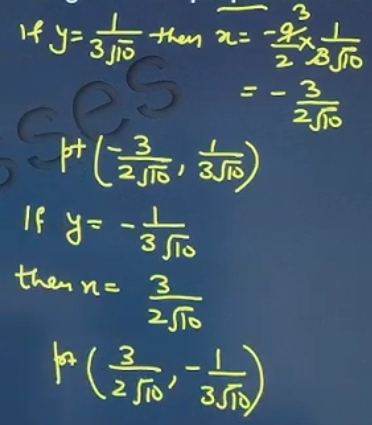 If y = 1/3√10 then x = -9̸3/2 × 1/3̸√10
= - 3/2√10
pt (-3/2√10, 1/3√10)
If y = - 1/3√10
then x = 3/2√10
pt (3/2√10, - 1/3√10)
sses